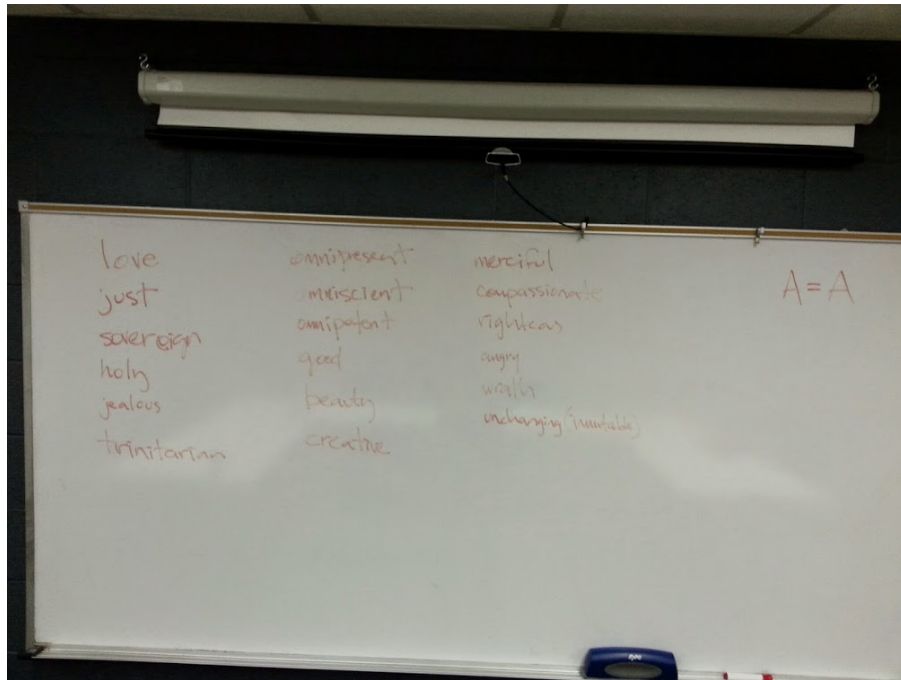 love
just
sovereign
holy
jealous
trinitarian
omnipresent
omniscient
omnipotent
good
beauty
creative
merciful
compassionate
righteous
angry
wrath
unchanging (immutable)
A = A